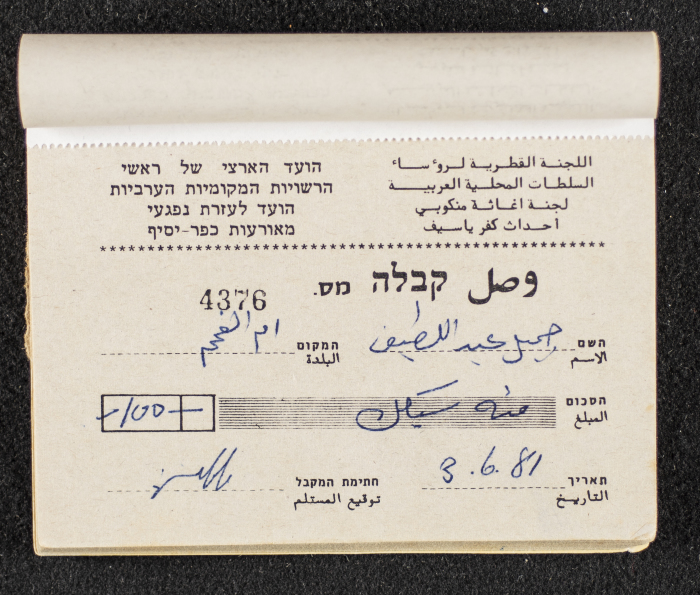 اللجنة القطرية لروءساء
السلطات المحلية العربية
لجنة اغاثة منكوبي
أحداث كفر ياسيف
הועד הארצי של ראשי
הרשויות המקומיות הערביות
הועד לעזרת נפגעי
מאורעות כפר-יסיף
******************************************************
وصل קבלה מס. 4376
השם جميل عبد اللطيف המקום ام الفحم
الاسم البلدة
הסכום مئة شيكل -/100-
المبلغ
תאריך 3.6.81 חתימת המקבל
التاريخ توقيع المستلم